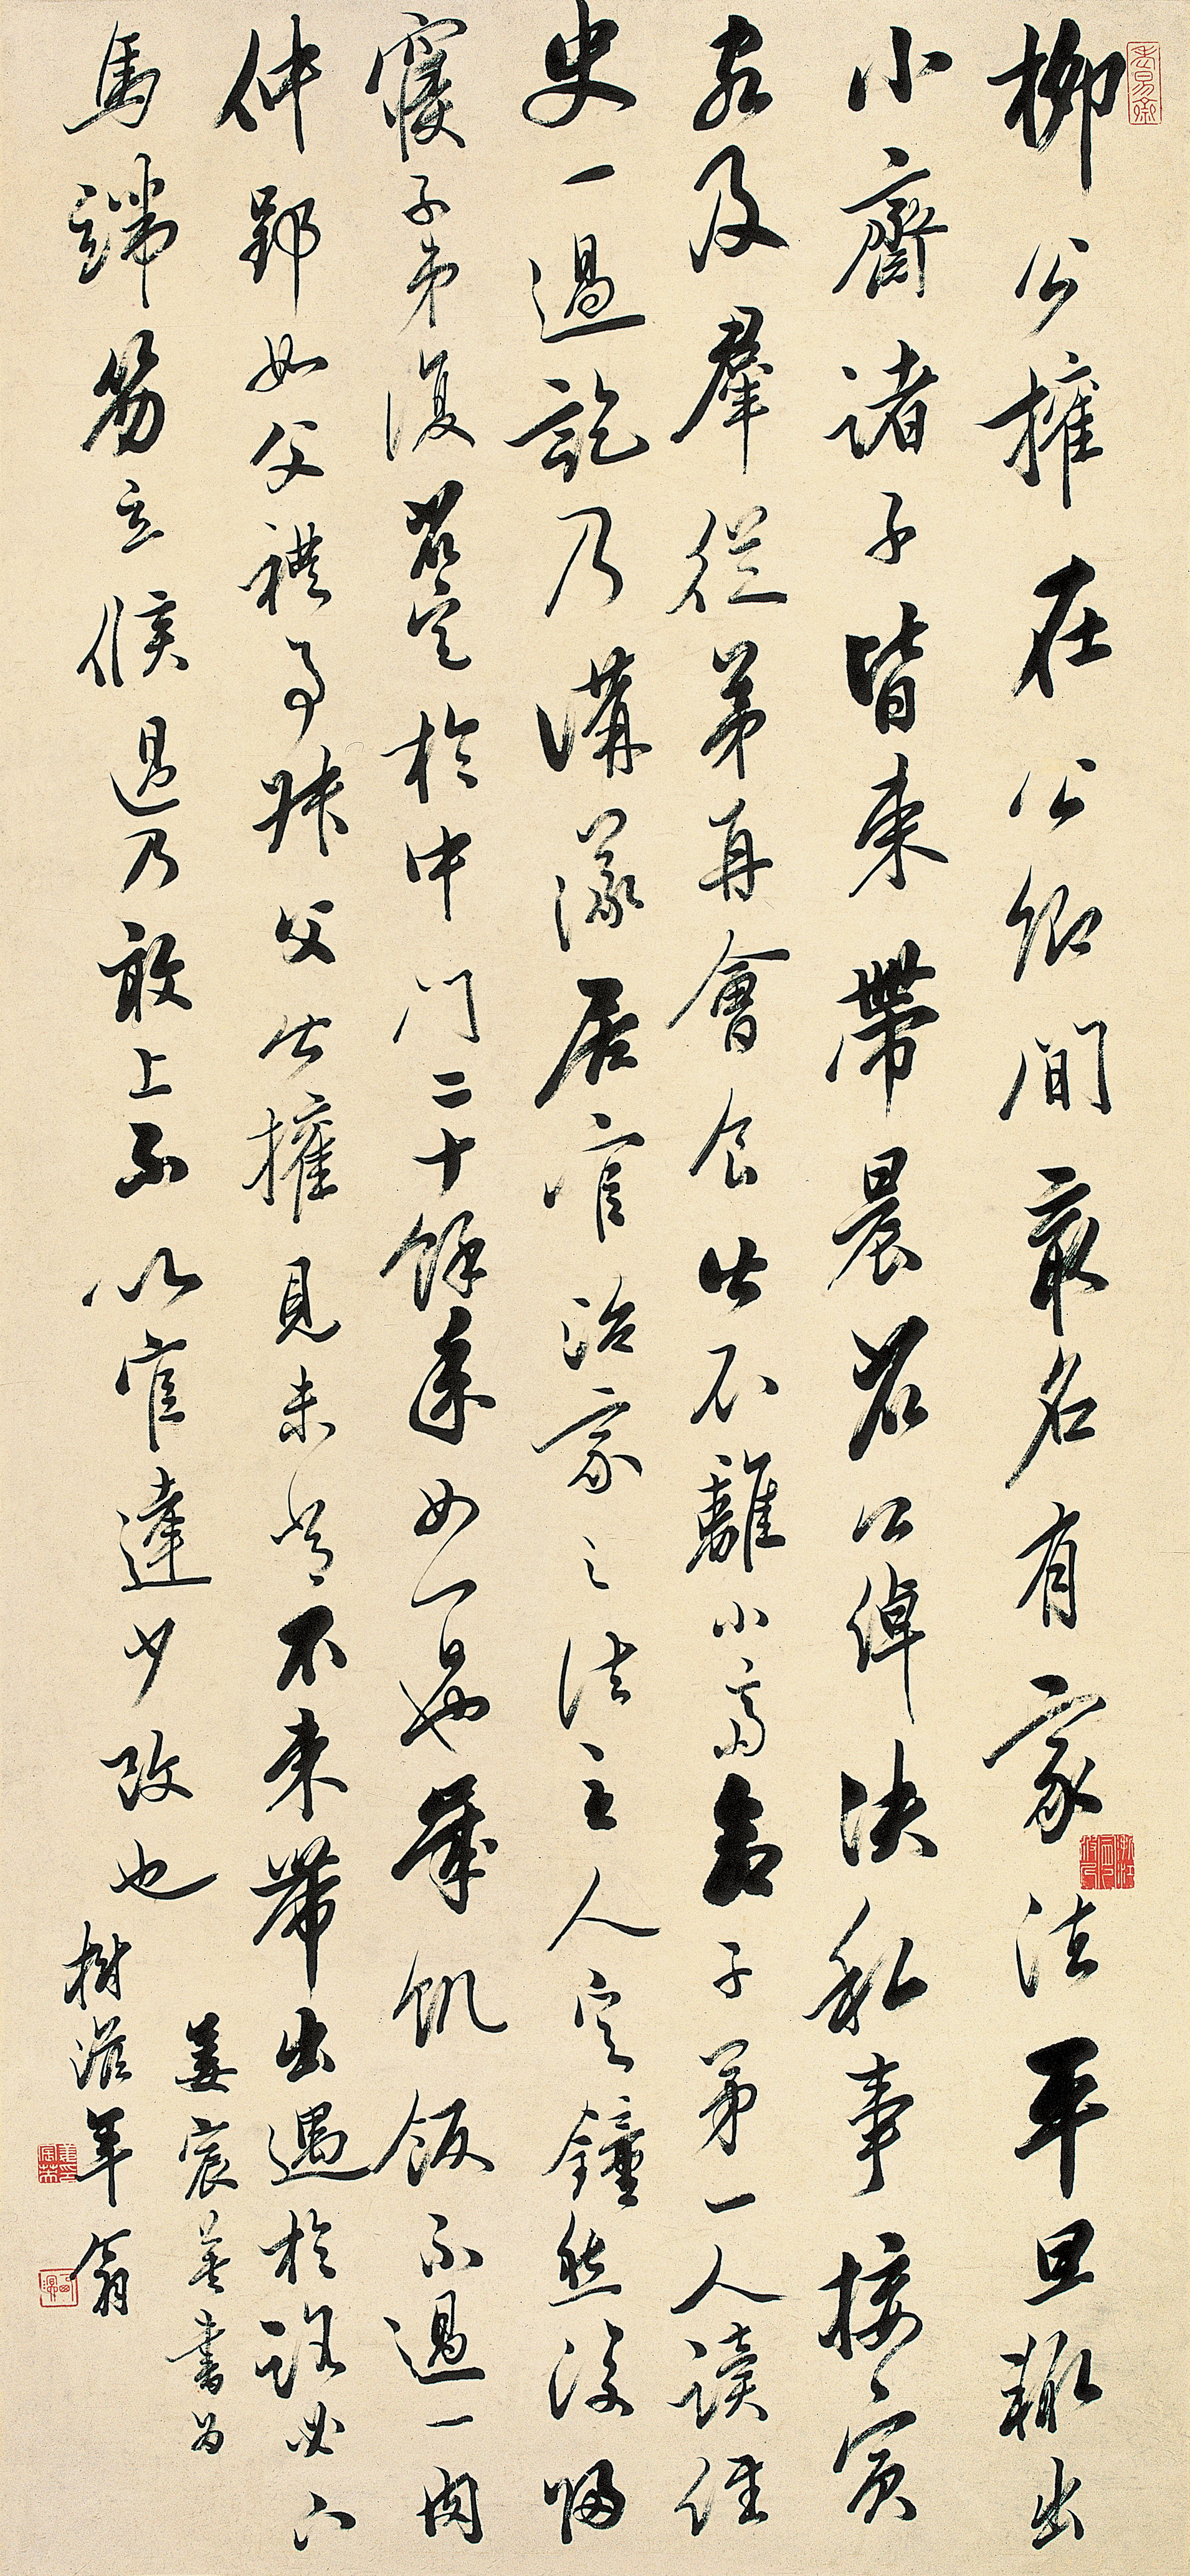 柳公權在公卿間最名有家法平旦輒出
小齋諸子皆束帶晨省公綽決私事接賓
客及羣從弟再會食出不離小齋命子弟一人讀經
史一過訖乃講議居官治家之法至人定鐘然後歸
寢子弟復昏定於中門二十餘年如一日也歲飢飯不過一肉
仲郢如父禮事叔父公權見未嘗不束帶出遇於路必下
馬端笏立候過乃敢上不以官達少改也
姜宸英書為
樹滋年翁